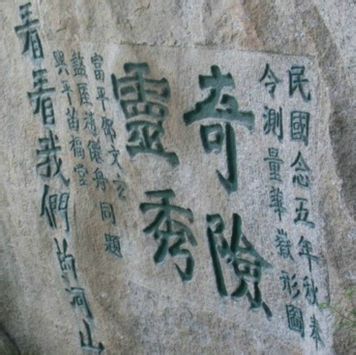 民國念五年秋奉
令測量華嶽形圖
奇險
靈秀
富平鄧文
盩厔趙同題
興平苗福堂
看看我們的河山